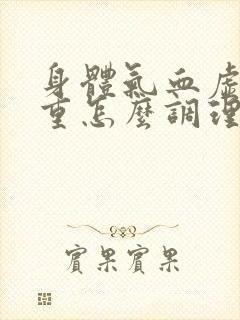 身體氣血虛
重怎麼調理
賓果賓果